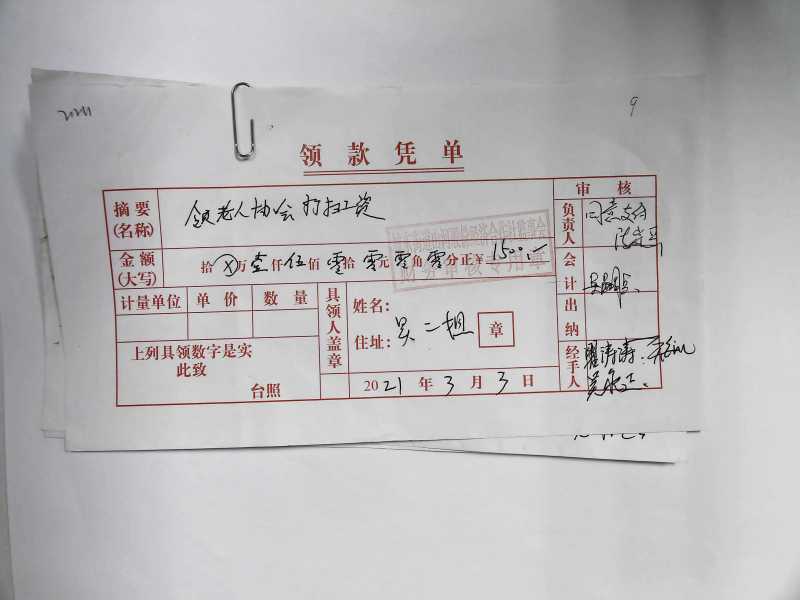 9
领款凭单
摘要(名称) 领老人协会打扫工资
审核
负责人 同意支付
金额(大写) 拾ⓧ万壹仟伍佰零拾零元零角零分正¥1500.—
财务审核专用章
会计
计量单位 单价 数量
具领人盖章
姓名:
住址: 吴二担
章
出纳
上列具领数字是实
此致
台照
2021年3月3日
经手人